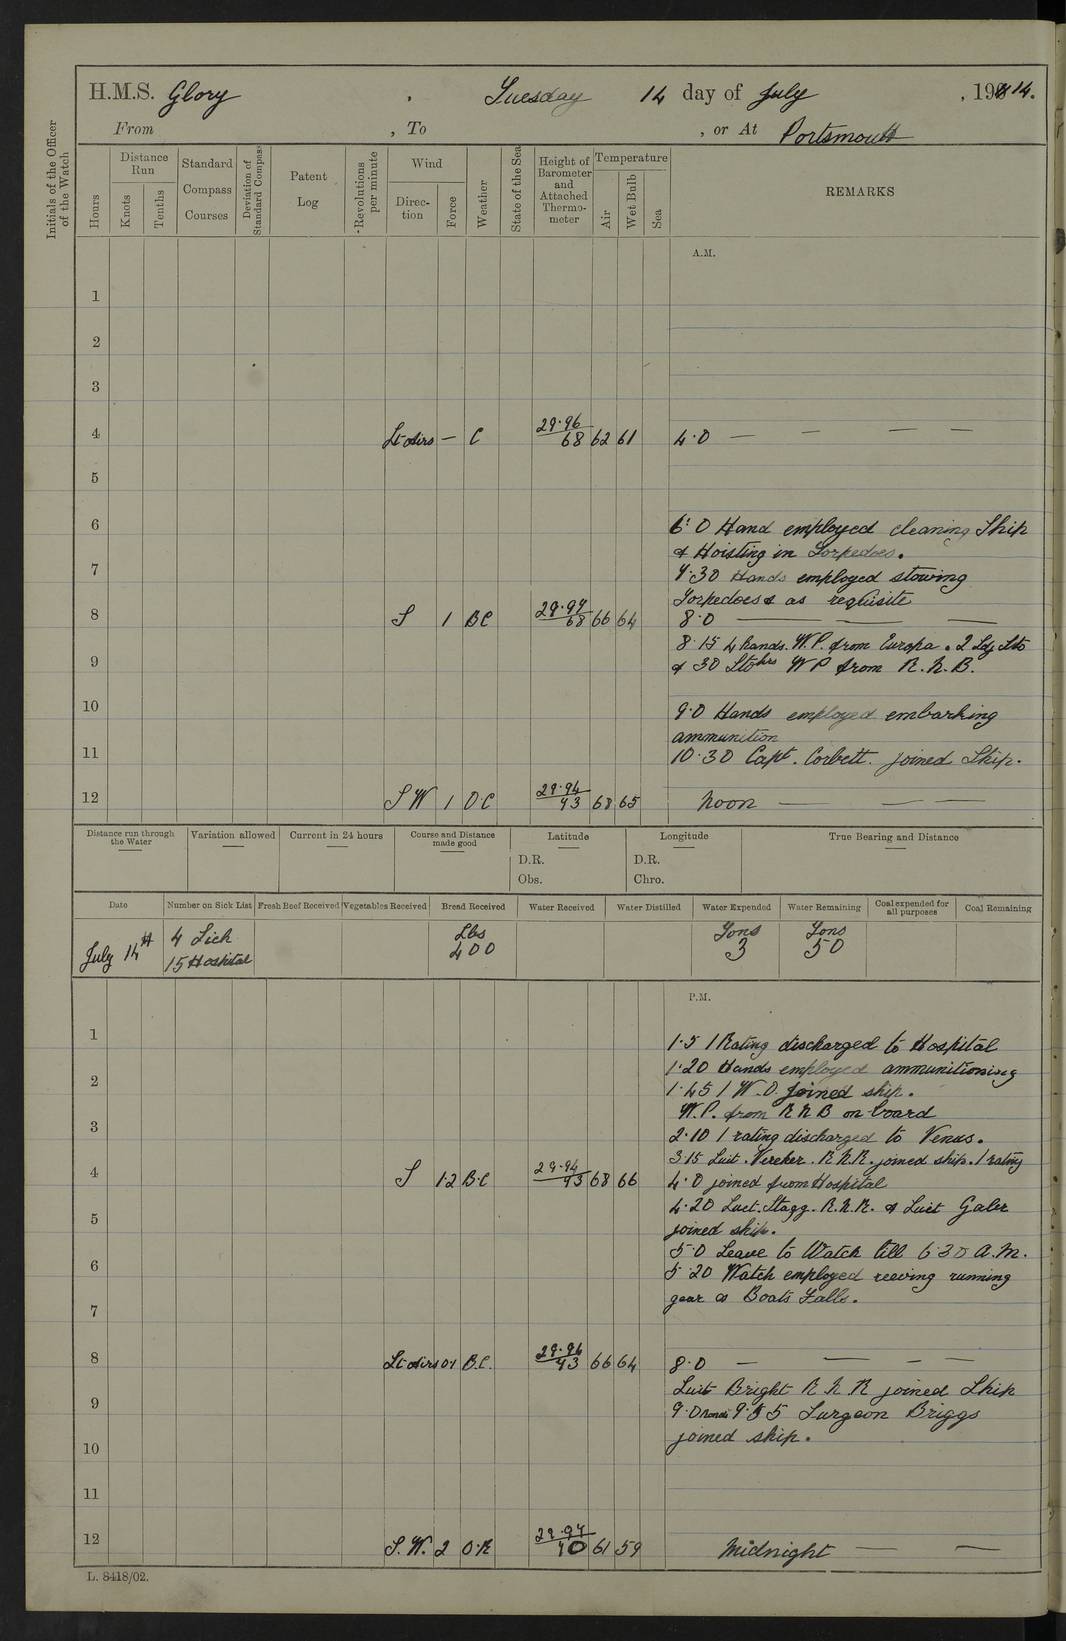 H.M.S. Glory , Tuesday 14 day of July , 1914.
From , To , or At Portsmouth
Initials of the Officer of the Watch
Hours
Distance Run
Knots
Tenths
Standard Compass Courses
Deviation of Standard Compass
Patent Log
Revolutions per minute
Wind
Direc-tion
Force
Weather
State of the Sea
Height of Barometer and Attached Thermo-meter
Temperature
Air
Wet Bulb
Sea
REMARKS
A.M.
1
2
3
4 Lt airs — C 29.96 68 62 61 4.0 — — — —
5
6 6.0 Hand employed cleaning Ship
& Hoisting in Torpedoes.
7 7.30 Hands employed stowing
Torpedoes & as requisite
8 S 1 BC 29.97 68 66 64 8.0 — — —
8.15 4 hands. W.P. from Europa. 2 Ldg Sto
9 & 30 Stohrs WP from R.N.B.
10 9.0 Hands employed embarking
ammunition
11 10.30 Capt. Corbett. joined Ship.
12 SW 1 OC 29.94 73 68 65 Noon — — —
Distance run through the Water
Variation allowed
Current in 24 hours
Course and Distance made good
Latitude
D.R.
Obs.
Longitude
D.R.
Chro.
True Bearing and Distance
Date Number on Sick List Fresh Beef Received Vegetables Received Bread Received Water Received Water Distilled Water Expended Water Remaining Coal expended for all purposes Coal Remaining
July 14th 4 Sick Lbs Tons Tons
15 Hospital 400 3 50
P.M.
1 1.5 1 Rating discharged to Hospital
1.20 Hands employed ammunitioning
2 1.45 1 W.O. joined ship.
W.P. from RNB on board
3 2.10 1 rating discharged to Venus.
3.15 Luit. Vereker. R.N.R. joined ship. 1 rating
4 S 1.2 B.C 29.94 73 68 66 4.0 joined from Hospital
4.20 Luet. Stagg. R.N.R. & Luet
5 joined ship.
5.0 Leave to Watch till 6.30 A.M.
6 5.20 Watch employed reeving running
gear & Boats Falls.
7
8 Lt airs 0.1 B.C. 29.96 73 66 64 8.0 — — — —
Luit Bright R N R joined Ship
9 9.0 9.55 Surgeon Briggs
joined ship.
10
11
12 S.W. 2 O.R 29.97 70 61 59 Midnight — —
L. 8418/02.